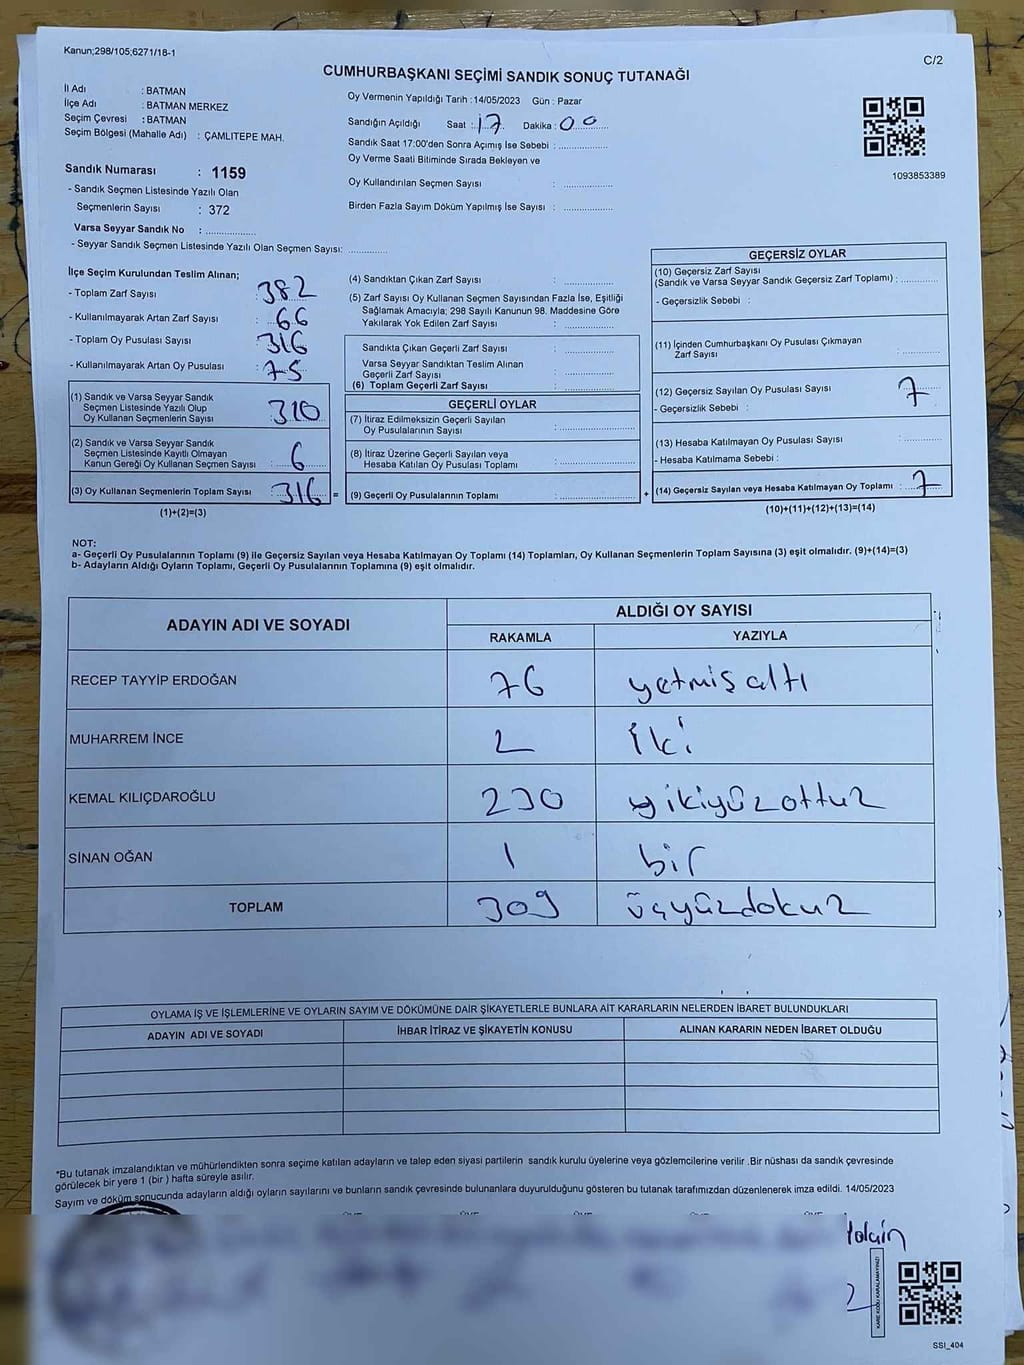 Kanun;298/105;6271/18-1
C/2
CUMHURBAŞKANI SEÇİMİ SANDIK SONUÇ TUTANAĞI
İl Adı : BATMAN
İlçe Adı : BATMAN MERKEZ
Seçim Çevresi : BATMAN
Seçim Bölgesi (Mahalle Adı) : ÇAMLITEPE MAH.
Sandık Numarası : 1159
- Sandık Seçmen Listesinde Yazılı Olan
Seçmenlerin Sayısı : 372
Varsa Seyyar Sandık No :
- Seyyar Sandık Seçmen Listesinde Yazılı Olan Seçmen Sayısı:
Oy Vermenin Yapıldığı Tarih : 14/05/2023 Gün : Pazar
Sandığın Açıldığı Saat : 17 Dakika : 00
Sandık Saat 17:00'den Sonra Açımış İse Sebebi :
Oy Verme Saati Bitiminde Sırada Bekleyen ve
Oy Kullandırılan Seçmen Sayısı :
Birden Fazla Sayım Döküm Yapılmış İse Sayısı :
1093853389
İlçe Seçim Kurulundan Teslim Alınan;
- Toplam Zarf Sayısı : 382
- Kullanılmayarak Artan Zarf Sayısı : 66
- Toplam Oy Pusulası Sayısı : 316
- Kullanılmayarak Artan Oy Pusulası : 75
(1) Sandık ve Varsa Seyyar Sandık
Seçmen Listesinde Yazılı Olup
Oy Kullanan Seçmenlerin Sayısı : 310
(2) Sandık ve Varsa Seyyar Sandık
Seçmen Listesinde Kayıtlı Olmayan
Kanun Gereği Oy Kullanan Seçmen Sayısı : 6
(3) Oy Kullanan Seçmenlerin Toplam Sayısı : 316 =
(1)+(2)=(3)
(4) Sandıktan Çıkan Zarf Sayısı :
(5) Zarf Sayısı Oy Kullanan Seçmen Sayısından Fazla İse, Eşitliği
Sağlamak Amacıyla; 298 Sayılı Kanunun 98. Maddesine Göre
Yakılarak Yok Edilen Zarf Sayısı :
Sandıkta Çıkan Geçerli Zarf Sayısı :
Varsa Seyyar Sandıktan Teslim Alınan
Geçerli Zarf Sayısı :
(6) Toplam Geçerli Zarf Sayısı :
GEÇERLİ OYLAR
(7) İtiraz Edilmeksizin Geçerli Sayılan
Oy Pusulalarının Sayısı :
(8) İtiraz Üzerine Geçerli Sayılan veya
Hesaba Katılan Oy Pusulası Toplamı :
(9) Geçerli Oy Pusulalarının Toplamı : +
GEÇERSİZ OYLAR
(10) Geçersiz Zarf Sayısı
(Sandık ve Varsa Seyyar Sandık Geçersiz Zarf Toplamı) :
- Geçersizlik Sebebi :
(11) İçinden Cumhurbaşkanı Oy Pusulası Çıkmayan
Zarf Sayısı :
(12) Geçersiz Sayılan Oy Pusulası Sayısı : 7
- Geçersizlik Sebebi :
(13) Hesaba Katılmayan Oy Pusulası Sayısı :
- Hesaba Katılmama Sebebi :
(14) Geçersiz Sayılan veya Hesaba Katılmayan Oy Toplamı : 7
(10)+(11)+(12)+(13)=(14)
NOT:
a- Geçerli Oy Pusulalarının Toplamı (9) ile Geçersiz Sayılan veya Hesaba Katılmayan Oy Toplamı (14) Toplamları, Oy Kullanan Seçmenlerin Toplam Sayısına (3) eşit olmalıdır. (9)+(14)=(3)
b- Adayların Aldığı Oyların Toplamı, Geçerli Oy Pusulalarının Toplamına (9) eşit olmalıdır.
ADAYIN ADI VE SOYADI
ALDIĞI OY SAYISI
RAKAMLA YAZIYLA
RECEP TAYYİP ERDOĞAN 76 yetmiş altı
MUHARREM İNCE 2 iki
KEMAL KILIÇDAROĞLU 230 ikiyüzottuz
SİNAN OĞAN 1 bir
TOPLAM 309 üçyüzdokuz
OYLAMA İŞ VE İŞLEMLERİNE VE OYLARIN SAYIM VE DÖKÜMÜNE DAİR ŞİKAYETLERLE BUNLARA AİT KARARLARIN NELERDEN İBARET BULUNDUKLARI
ADAYIN ADI VE SOYADI İHBAR İTİRAZ VE ŞİKAYETİN KONUSU ALINAN KARARIN NEDEN İBARET OLDUĞU
*Bu tutanak imzalandıktan ve mühürlendikten sonra seçime katılan adayların ve talep eden siyasi partilerin sandık kurulu üyelerine veya gözlemcilerine verilir .Bir nüshası da sandık çevresinde
görülecek bir yere 1 (bir ) hafta süreyle asilır.
Sayım ve döküm sonucunda adayların aldığı oyların sayılarını ve bunların sandık çevresinde bulunanlara duyurulduğunu gösteren bu tutanak tarafımızdan düzenlenerek imza edildi. 14/05/2023
KARE KODU KARALAMAYINIZ!
SSI_404